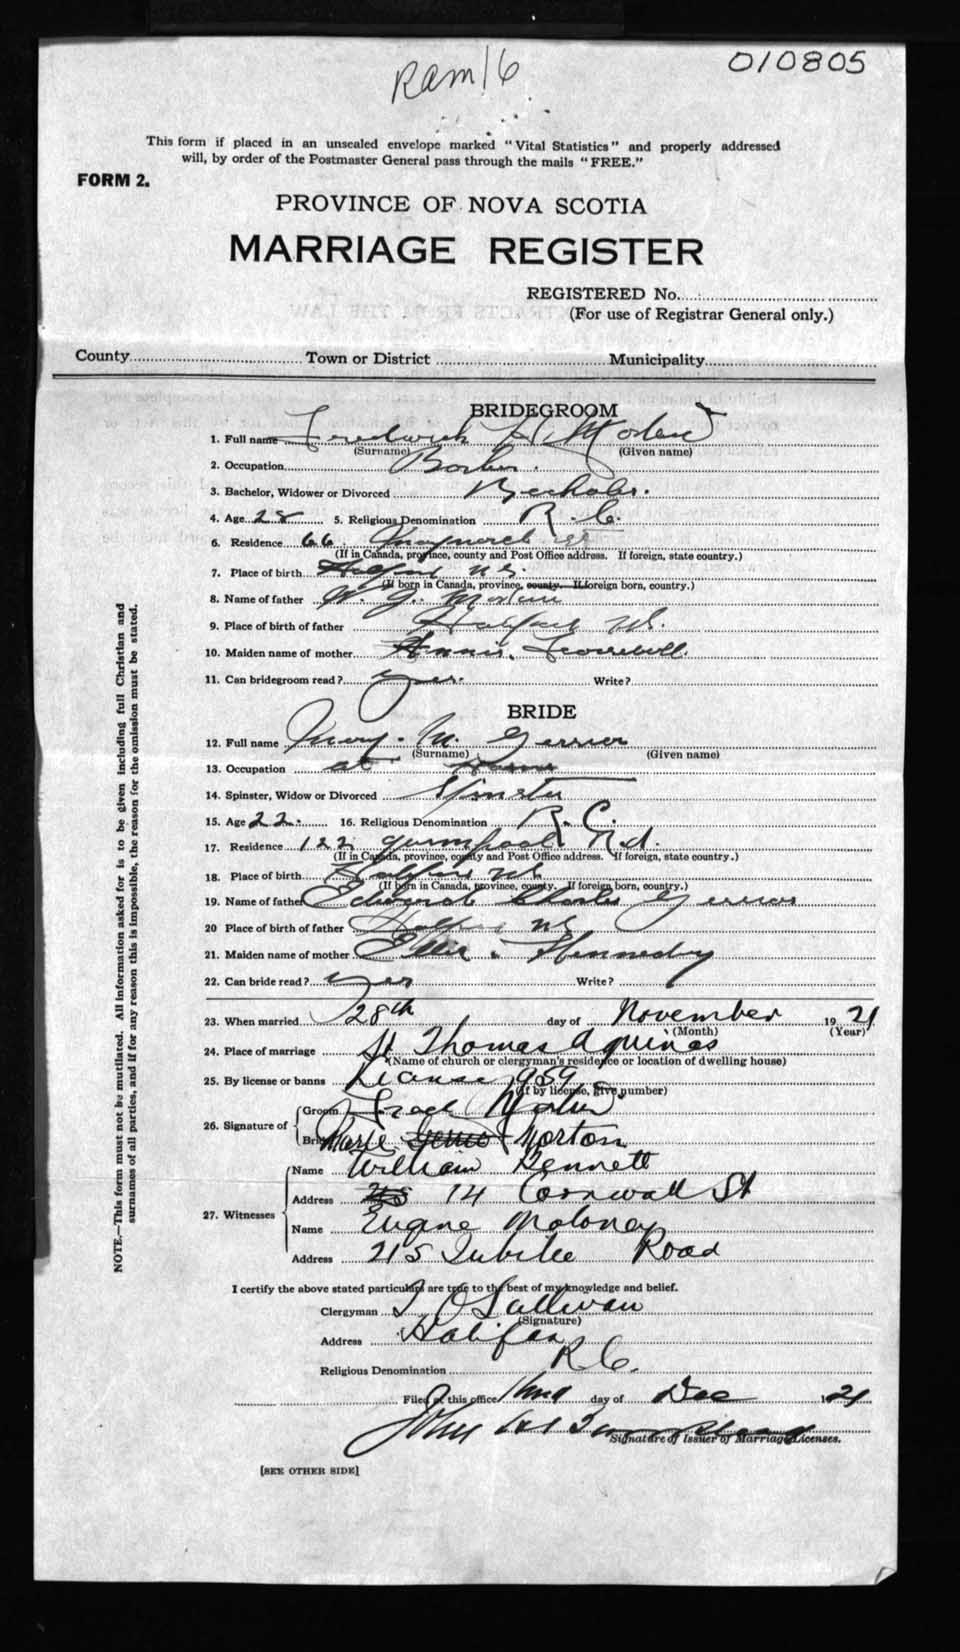 Ram 16
010805
This form if placed in an unsealed envelope marked "Vital Statistics" and properly addressed
will, by order of the Postmaster General pass through the mails "FREE."
FORM 2.
PROVINCE OF NOVA SCOTIA
MARRIAGE REGISTER
REGISTERED No.
(For use of Registrar General only.)
County Town or District Municipality
BRIDEGROOM
1. Full name Frederick H.
(Surname) (Given name)
2. Occupation
3. Bachelor, Widower or Divorced Bachelor.
4. Age 28 5. Religious Denomination R. C.
6. Residence 66
(If in Canada, province, county and Post Office address. If foreign, state country.)
7. Place of birth Halifax N.S.
(If born in Canada, province, county. If foreign born, country.)
8. Name of father W. J.
9. Place of birth of father Halifax N.S.
10. Maiden name of mother Annie
11. Can bridegroom read? yes. Write?
BRIDE
12. Full name Mary. M.
(Surname) (Given name)
13. Occupation at Home
14. Spinster, Widow or Divorced Spinster
15. Age 22. 16. Religious Denomination R. C.
17. Residence 122 Quinpool Rd.
(If in Canada, province, county and Post Office address. If foreign, state country.)
18. Place of birth Halifax N.S.
(If born in Canada, province, county. If foreign born, country.)
19. Name of father Edward Charles
20 Place of birth of father Halifax N.S.
21. Maiden name of mother Ellen Kennedy
22. Can bride read? yes Write?
23. When married 28th day of November 1921
(Month) (Year)
24. Place of marriage St Thomas Aquinas
(Name of church or clergyman's residence or location of dwelling house)
25. By license or banns License 959
(If by license, give number)
26. Signature of
Groom Fred
Bride Marie Norton
27. Witnesses
Name William Kennett
Address 14 Cornwall St
Name Eugene Moloney
Address 215 Jubilee Road
I certify the above stated particulars are true to the best of my knowledge and belief.
Clergyman T O'Sullivan
(Signature)
Address Halifax
Religious Denomination R. C.
Filed at this office day of Dec 1921
John
Signature of Issuer of Marriage Licenses.
[SEE OTHER SIDE]
NOTE.—This form must not be mutilated. All information asked for is to be given including full Christian and
surnames of all parties, and if for any reason this is impossible, the reason for the omission must be stated.